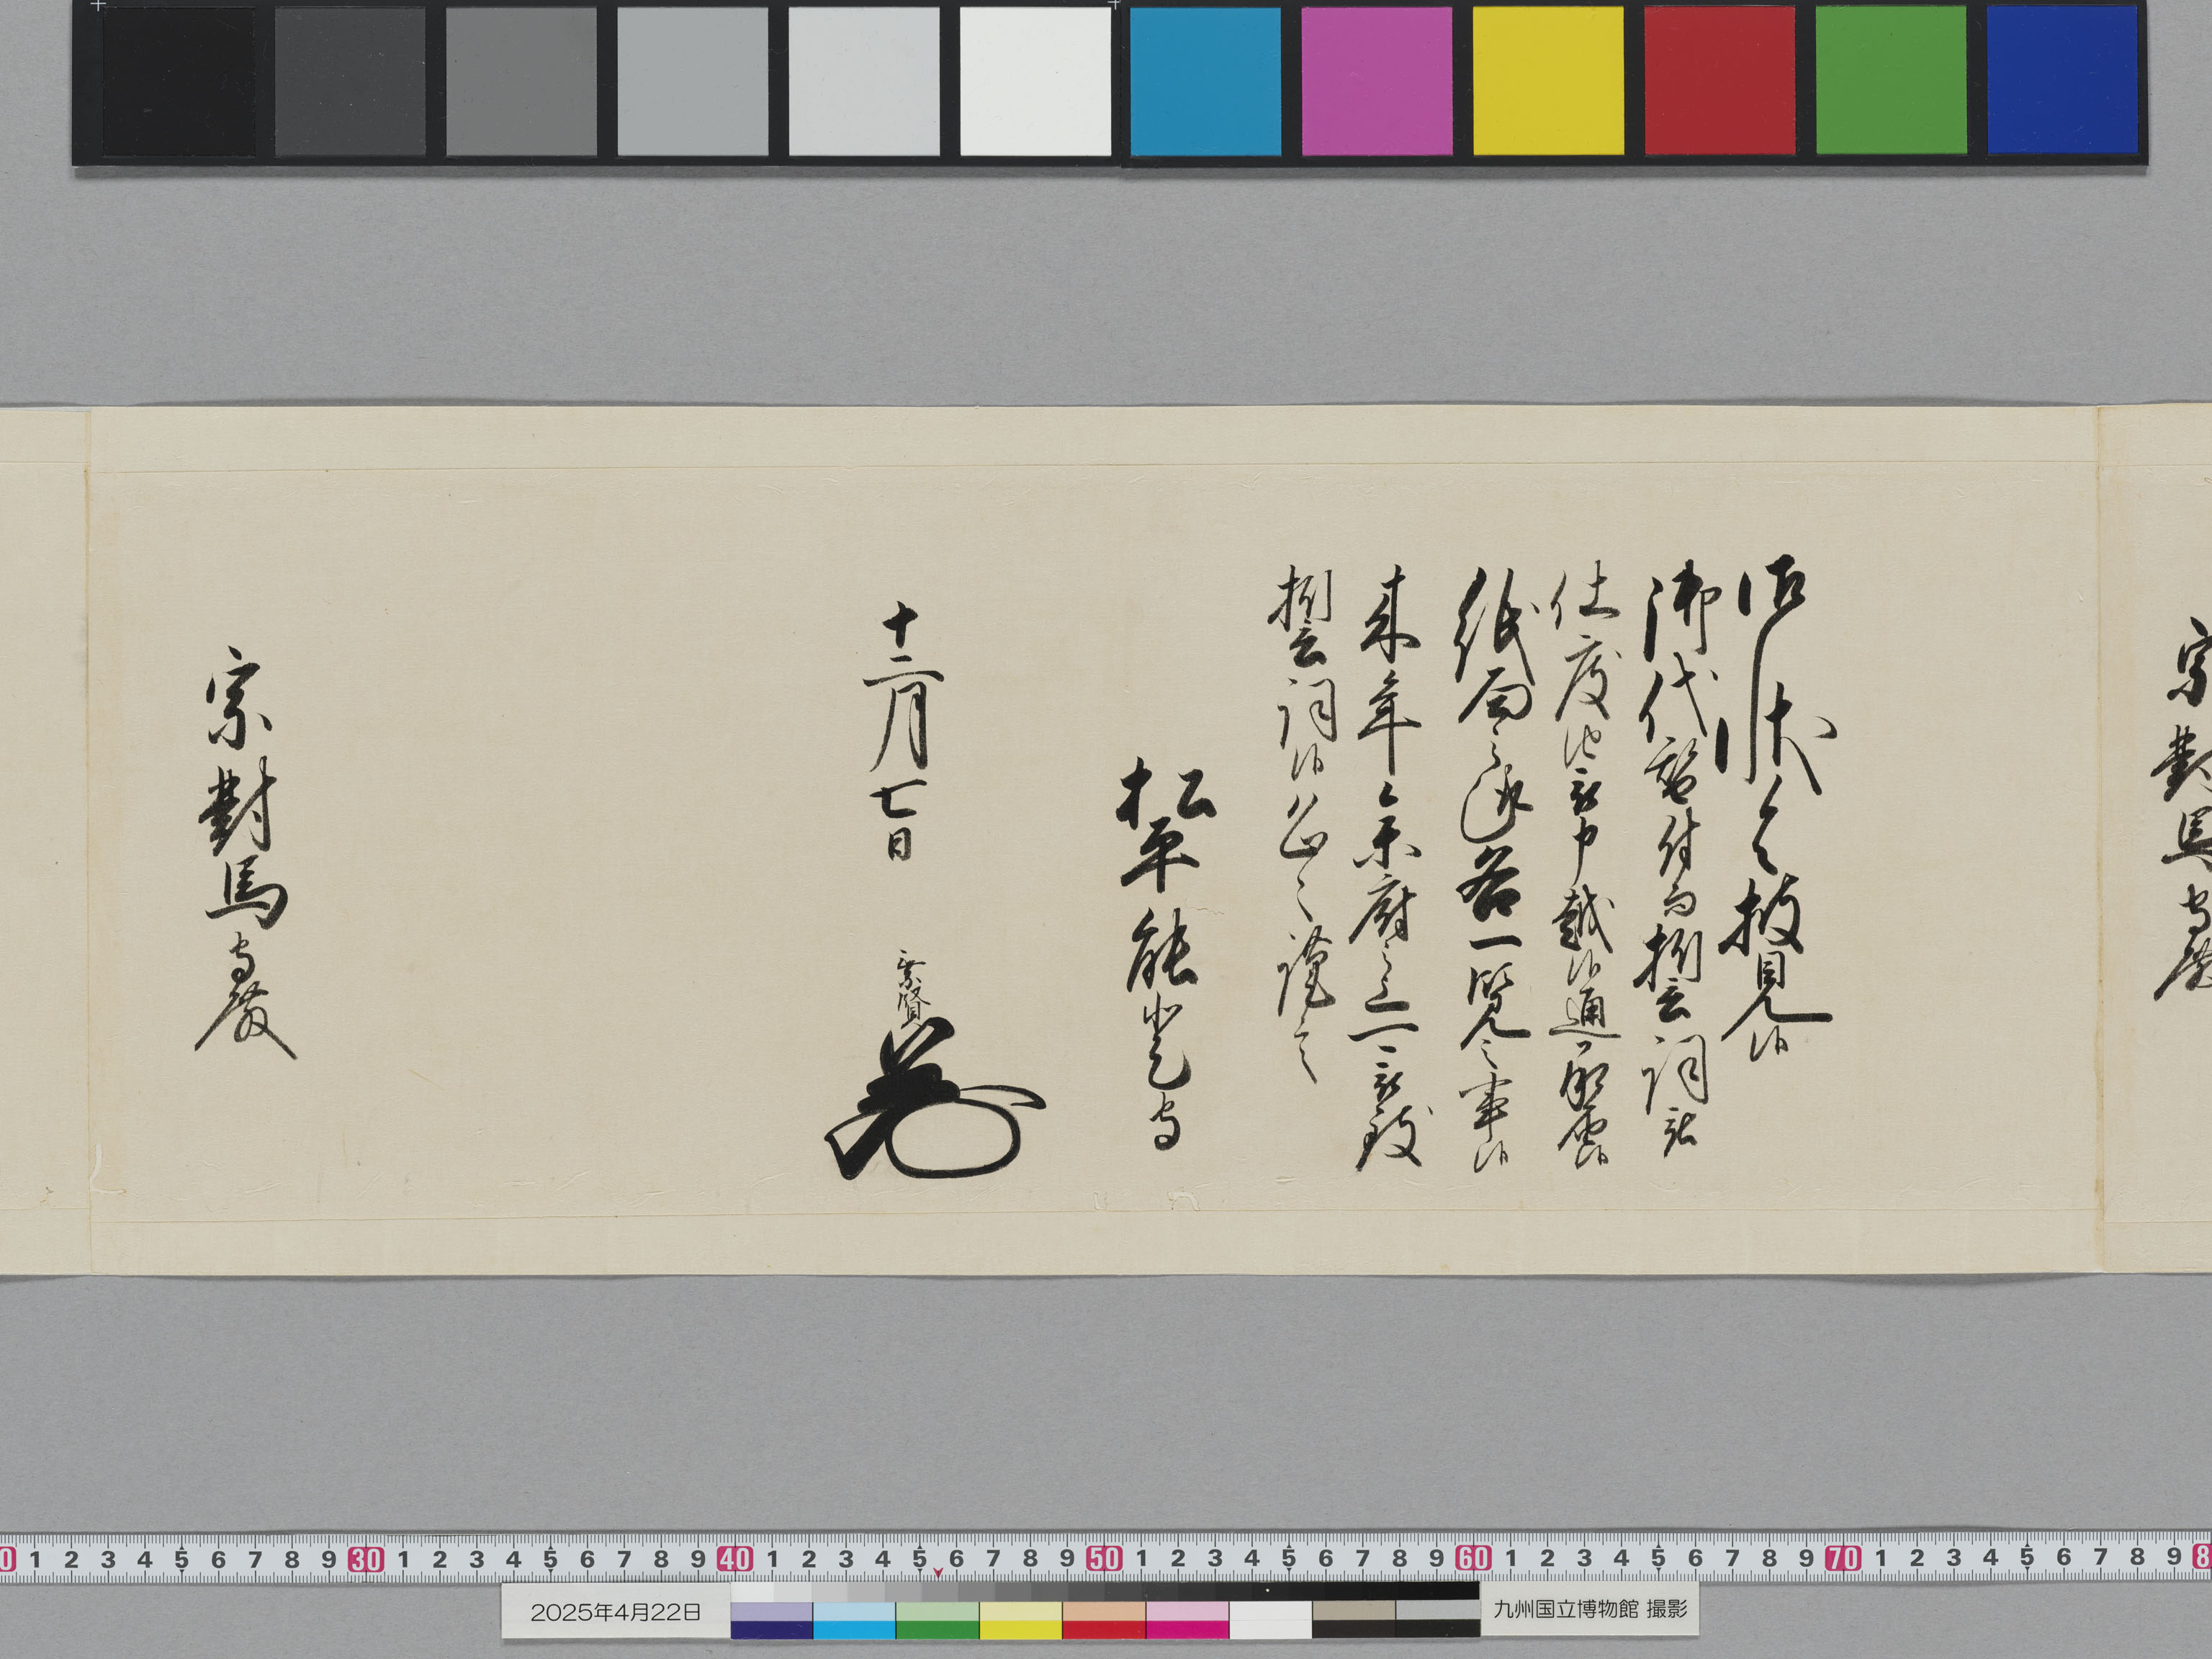 宗對馬守殿
御状令披見候
御代替付而誓詞被
仕度被申越候通承届候
紙面之趣各一覧之事候
来年参府之上可被致
誓詞候恐々謹言
松平能登守
十二月七日
乗賢
宗對馬守殿
0 1 2 3 4 5 6 7 8 9 30 1 2 3 4 5 6 7 8 9 40 1 2 3 4 5 6 7 8 9 50 1 2 3 4 5 6 7 8 9 60 1 2 3 4 5 6 7 8 9 70 1 2 3 4 5 6 7 8 9 8
2025年4月22日
九州国立博物館 撮影